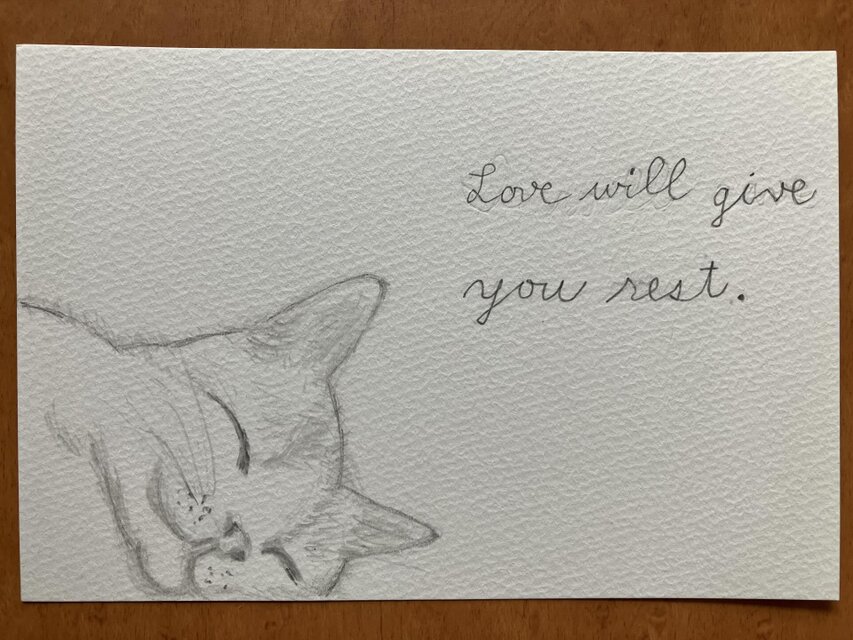 Love will give
you rest.